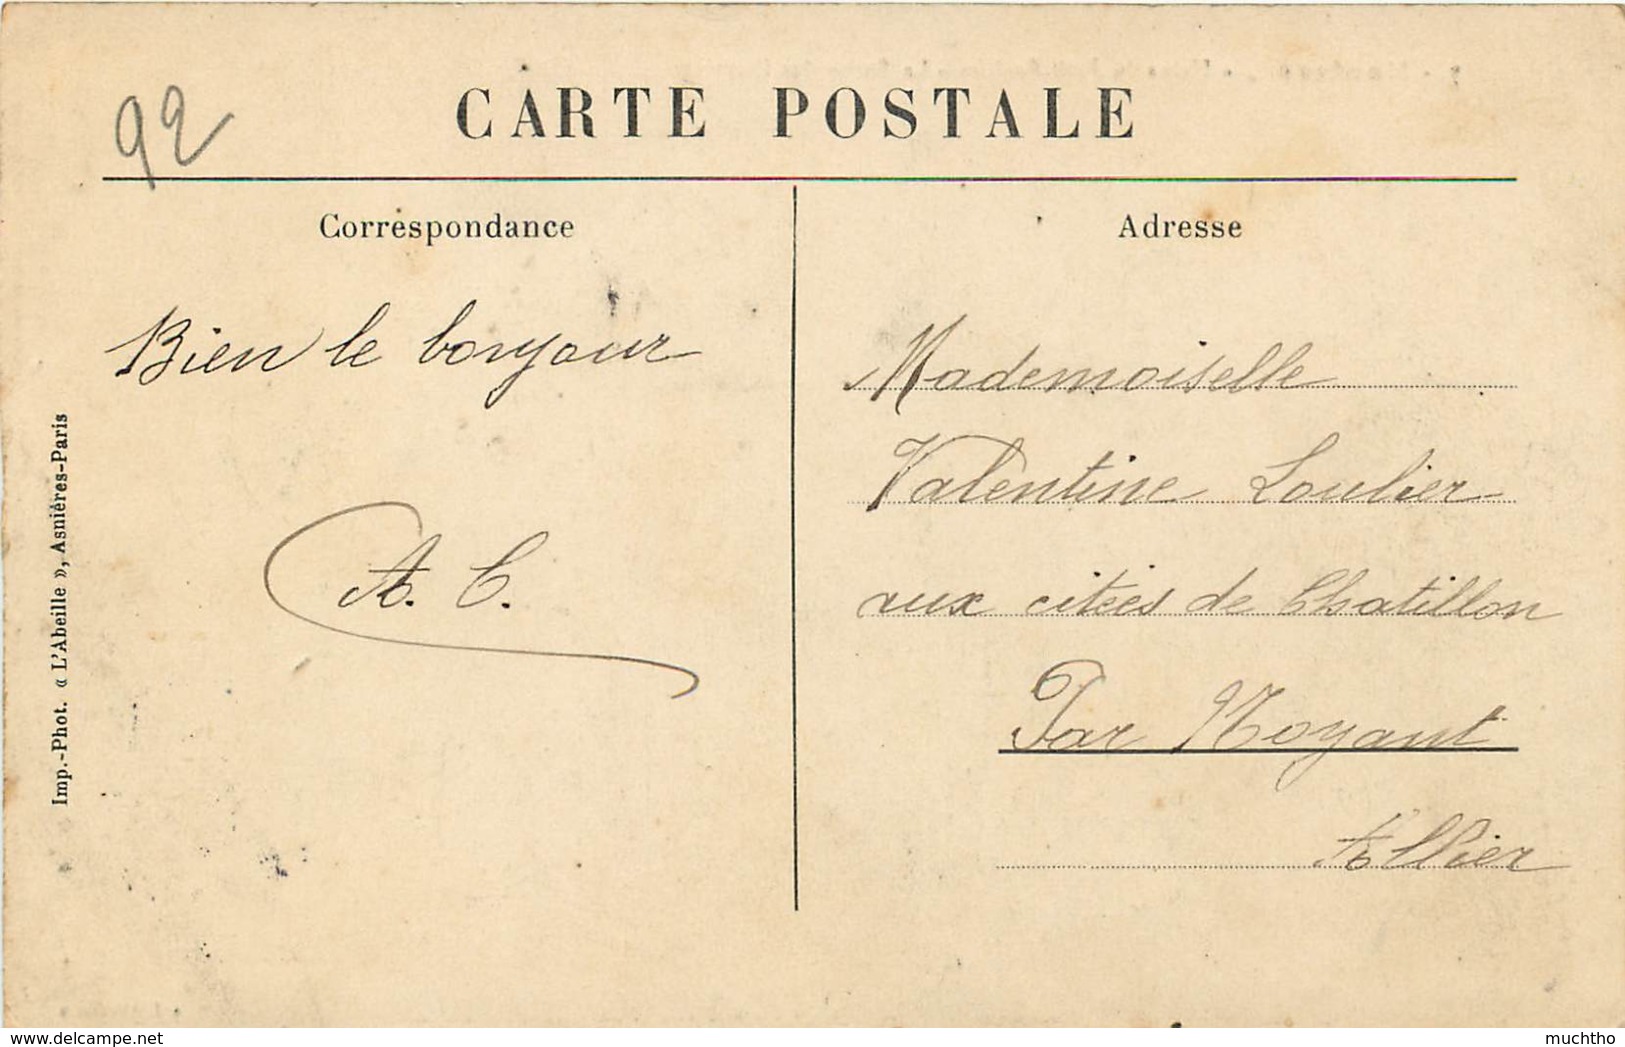 92
CARTE POSTALE
Correspondance
Adresse
Bien le bonjour
A. C.
Mademoiselle
Valentine Loulier
aux cités de Chatillon
Par Noyant
Allier
Imp.-Phot. « L'Abeille », Asnières-Paris
www.delcampe.net
muchtho